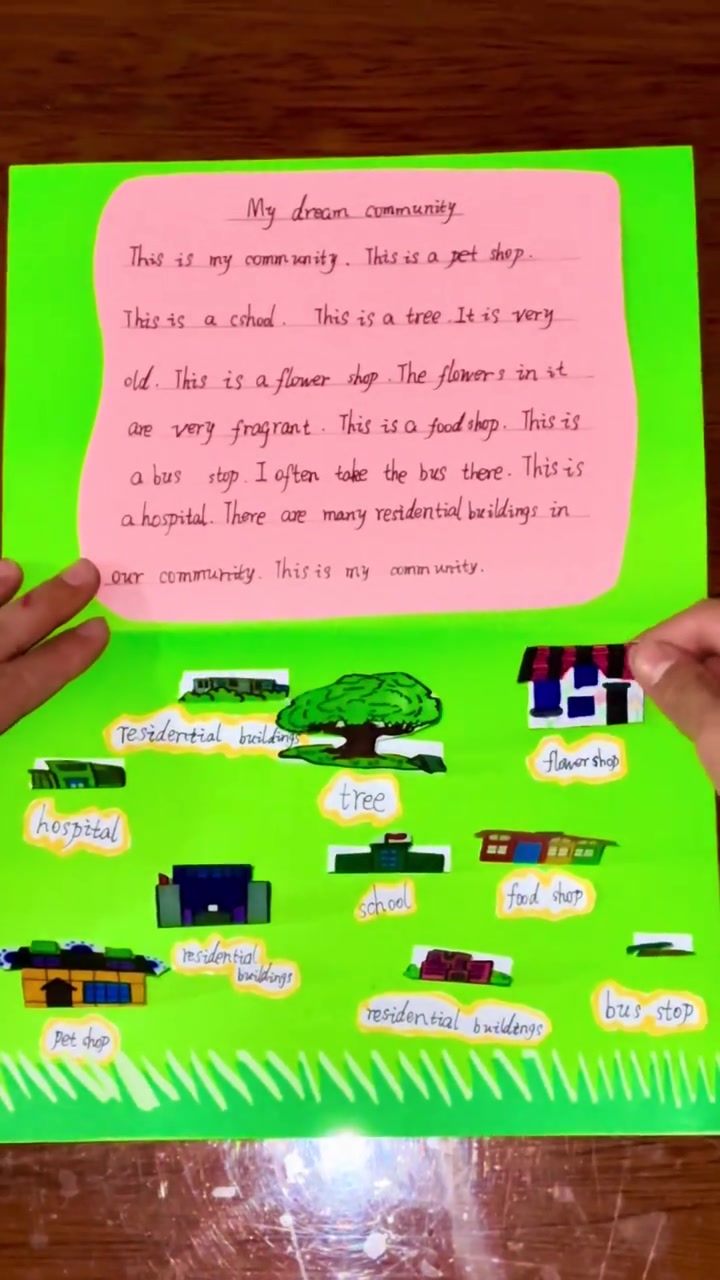 My dream community
This is my community. This is a pet shop.
This is a cshool. This is a tree. It is very
old. This is a flower shop. The flowers in it
are very fragrant. This is a food shop. This is
a bus stop. I often take the bus there. This is
a hospital. There are many residential buildings in
our community. This is my community.
residential buildings
flower shop
tree
hospital
school
food shop
residential
buildings
residential buildings
bus stop
pet shop